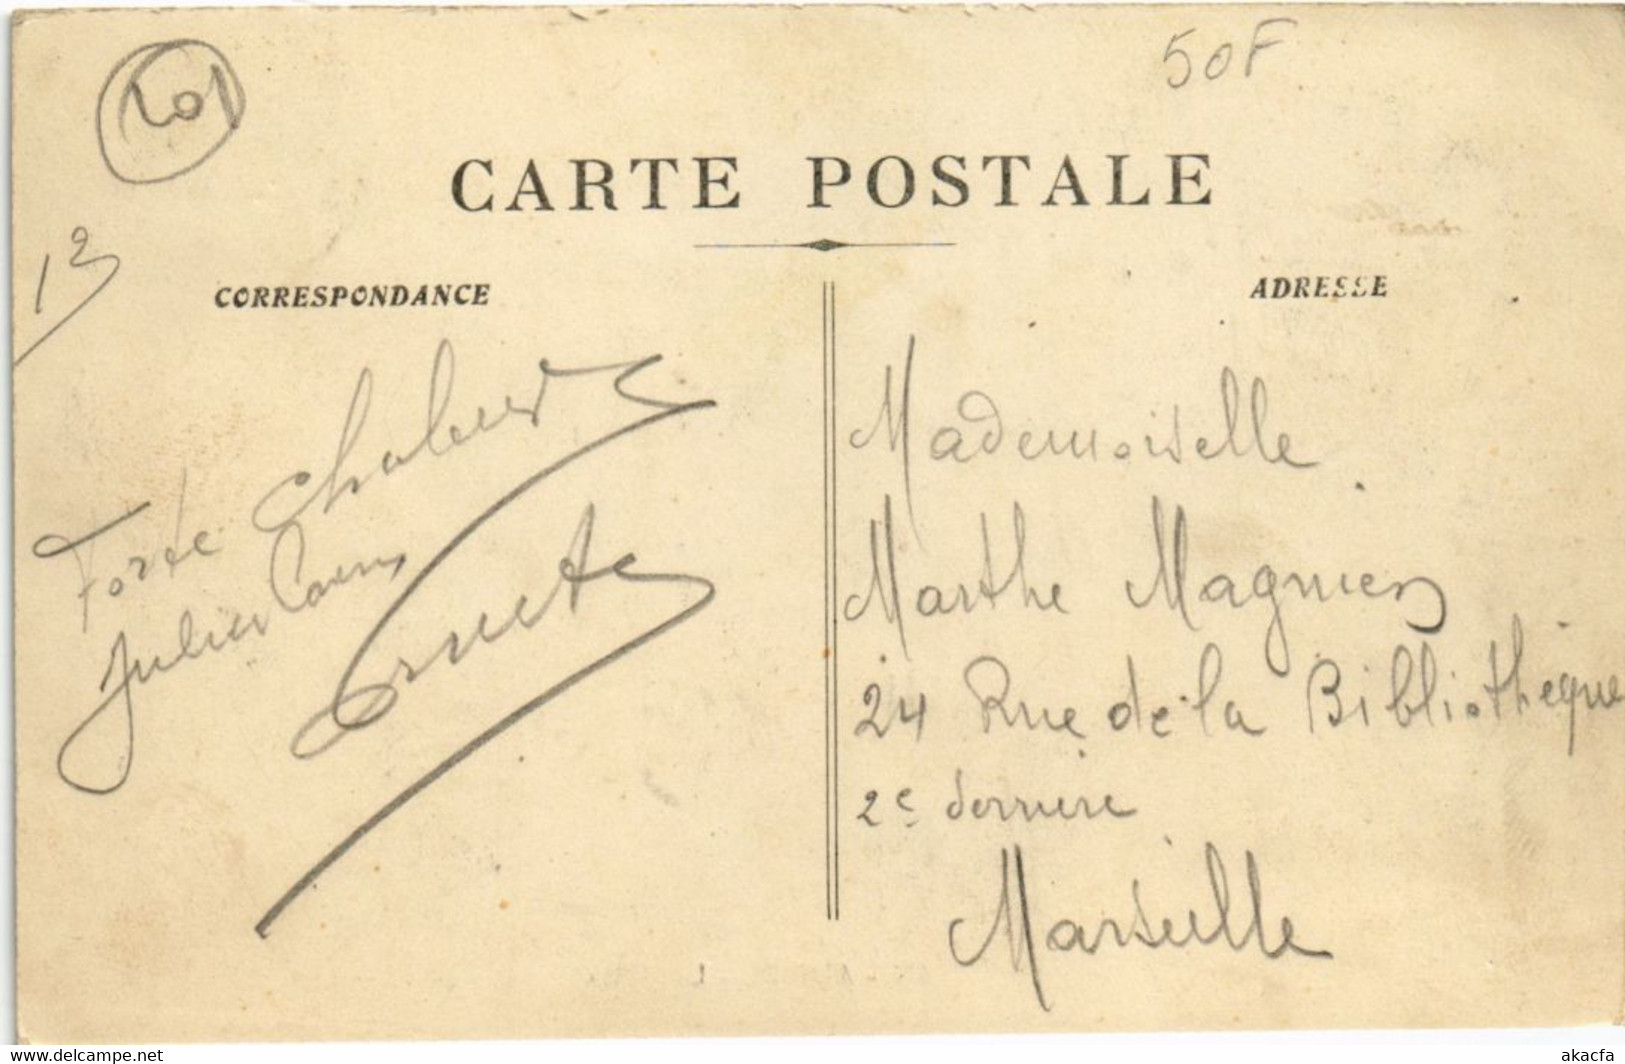 50F
CARTE POSTALE
13
CORRESPONDANCE
ADRESSE
Forte Chaleur
Julien
Mademoiselle
Marthe Magnien
24 Rue de la Bibliothèque
2e derriere
Marseille
www.delcampe.net
akacfa